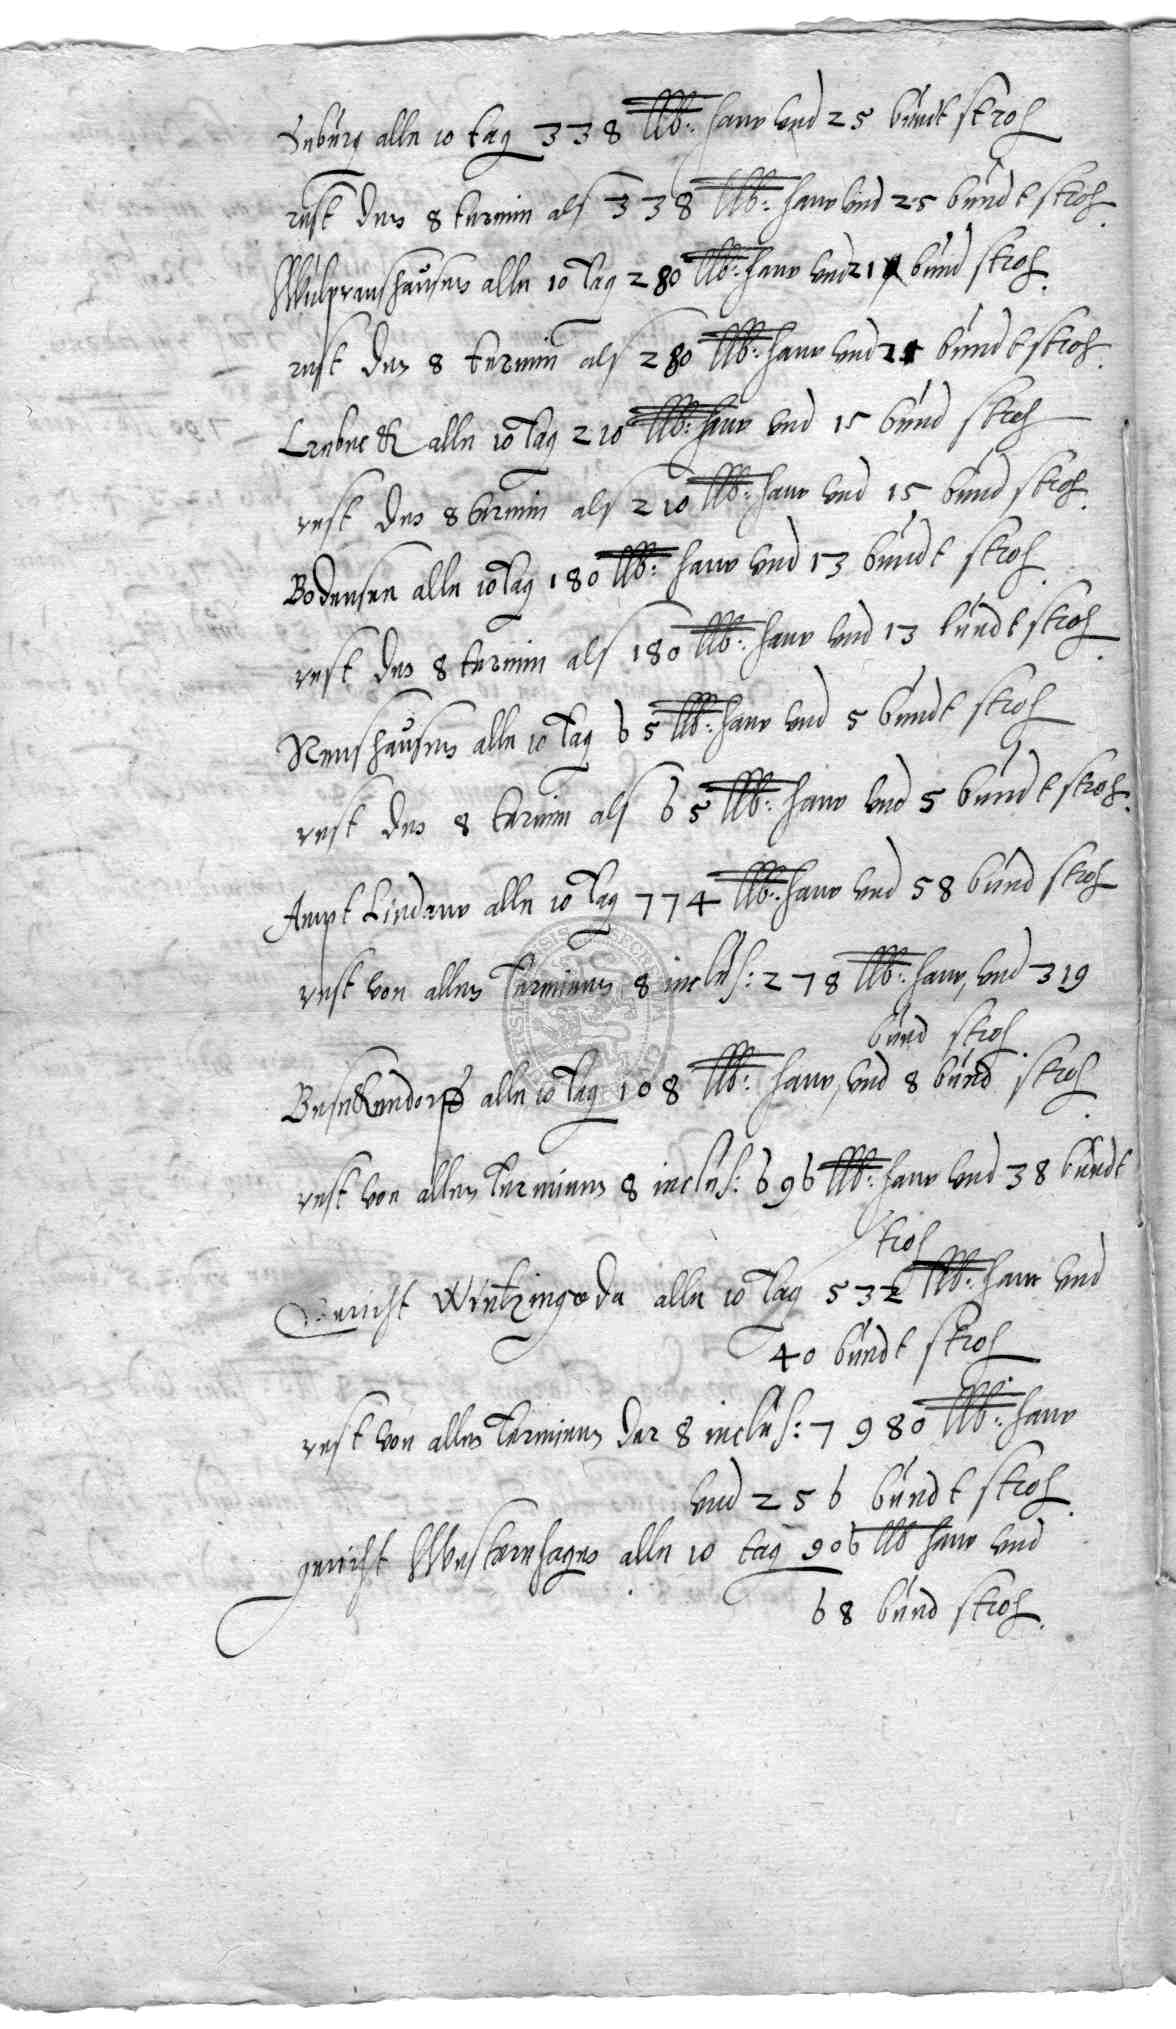 Seburg alle 10 tag 338 lb: haw vnd 25 bundt stroh
rest den 8 termin als 338 lb: haw vnd 25 bundt stroh.
alle 10 Tag 280 lb: haw vnd 21 bund stroh.
rest den 8 termin als 280 lb: haw vnd 21 bundt stroh.
Krebeck alle 10 Tag 210 lb: haw vnd 15 bund stroh
rest den 8 termin als 210 lb: haw vnd 15 bund stroh.
Bodensen alle 10 Tag 180 lb: haw vnd 13 bundt stroh.
rest den 8 termin als 180 lb: haw vnd 13 bundt stroh.
Renshausen alle 10 Tag 65 lb: haw vnd 5 bundt stroh
rest den 8 termin als 65 lb: haw vnd 5 bundt stroh.
Ampt Lindaw alle 10 Tag 774 lb: haw vnd 58 bund stroh
rest von allen Terminen 8 inclus: 278 lb: haw, vnd 319
bund stroh.
Besekendorff alle 10 Tag 108 lb: haw, vnd 8 bund stroh.
rest von allen Terminen 8 inclus: 696 lb: haw vnd 38 bundt
stroh
Gericht Wintzingeda alle 10 Tag 532 lb: haw vnd
40 bundt stroh
rest von allen Terminen der 8 inclus: 7980 lb: haw
vnd 256 bundt stroh.
gericht Westernhagen alle 10 tag 906 lb haw vnd
68 bund stroh.